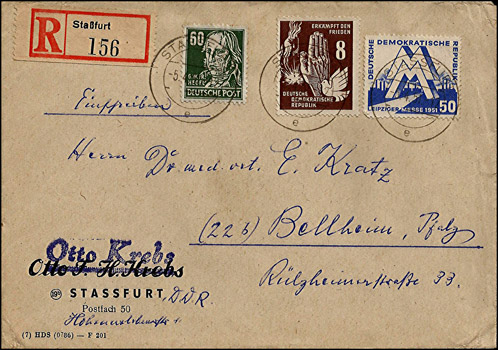 Staßfurt
R 156
60
G.W.F. HEGEL
DEUTSCHE POST
ERKÄMPFT DEN
FRIEDEN
8
DEUTSCHE
DEMOKRATISCHE
REPUBLIK
DEUTSCHE DEMOKRATISCHE REPUBLIK
LEIPZIGER MESSE 1951
50
Einschreiben
Herrn Dr. med. vet. E. Kratz
(22b) Bellheim, Pfalz
Rülzheimerstraße 33.
Otto Krebs
Otto F. H. Krebs
(19b) STASSFURT, D.D.R.
Postfach 50
(7) HDS (0786) — F 201